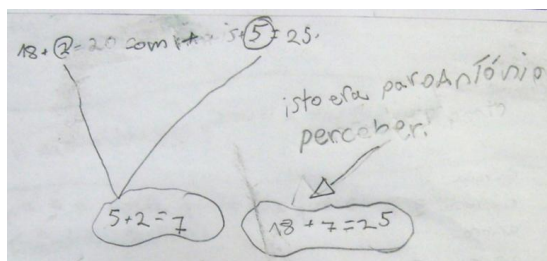 18+2=20 com mais 5=25.
isto era para o António
perceber.
5+2=7
18+7=25